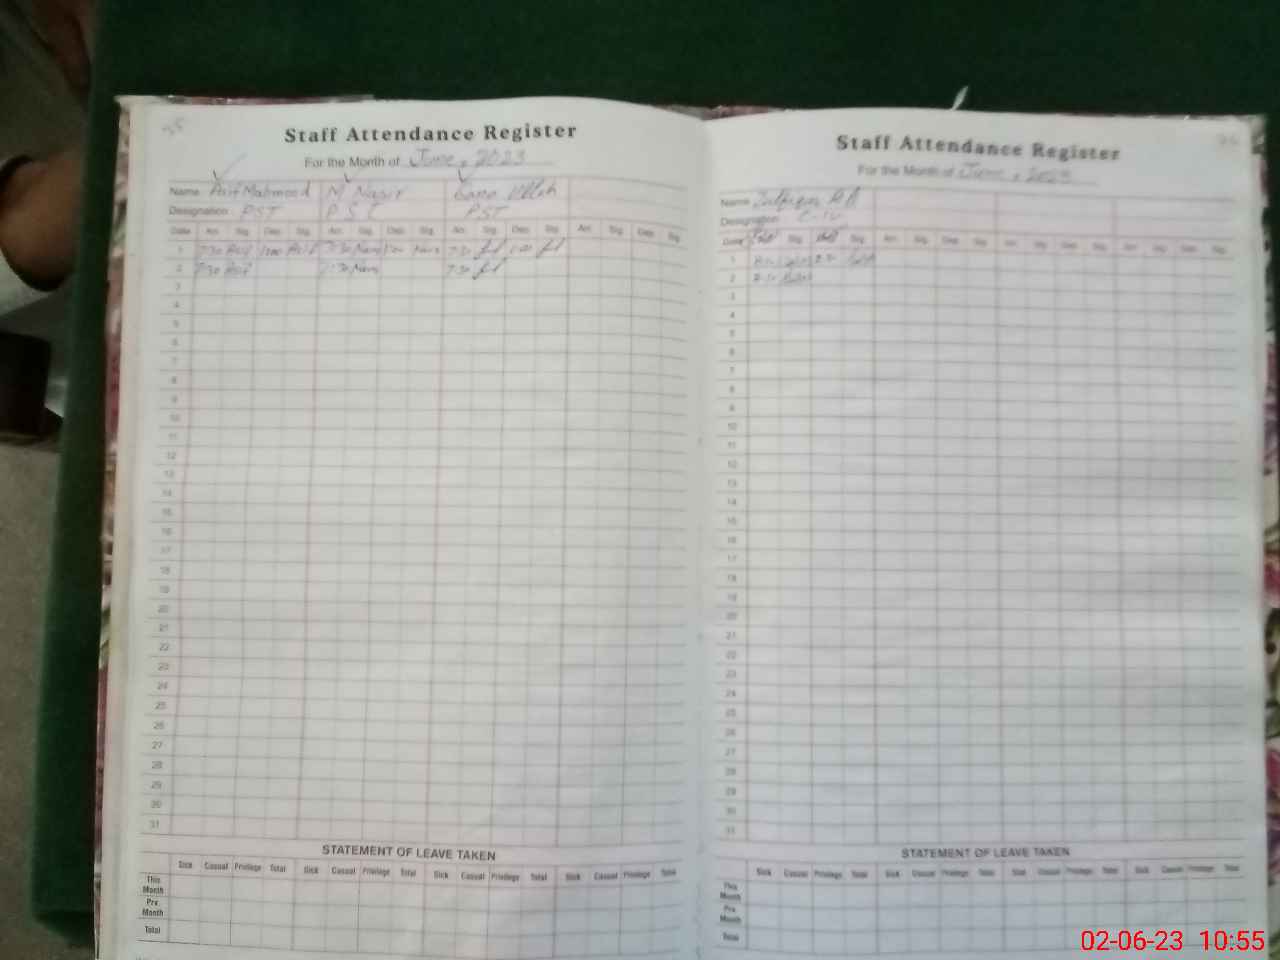 Staff Attendance Register
For the Month of June, 2023
Name Asif Mahmood M Nasir
Designation PST PST PST
Date Arr. Sig. Dep. Sig. Arr. Sig. Dep. Sig. Arr. Sig. Dep. Sig. Arr. Sig. Dep. Sig.
1 7:30 Asif 1:00 Asif 7:30 Nasir 1:00 Nasir 7:30 1:00
2 7:30 Asif 7:30 Nasir 7:30
3
4
5
6
7
8
9
10
11
12
13
14
15
16
17
18
19
20
21
22
23
24
25
26
27
28
29
30
31
STATEMENT OF LEAVE TAKEN
Sick Casual Privilege Total Sick Casual Privilege Total Sick Casual Privilege Total Sick Casual Privilege Total
This Month
Pre Month
Total
Staff Attendance Register
For the Month of June, 2023
Name
Designation
Date Sig. Sig. Arr. Sig. Dep. Sig. Arr. Sig. Dep. Sig. Arr. Sig. Dep. Sig.
1
2
3
4
5
6
7
8
9
10
11
12
13
14
15
16
17
18
19
20
21
22
23
24
25
26
27
28
29
30
31
STATEMENT OF LEAVE TAKEN
Sick Casual Privilege Total Sick Casual Privilege Total Sick Casual Privilege Total Sick Casual Privilege Total
This Month
Pre Month
Total
02-06-23 10:55